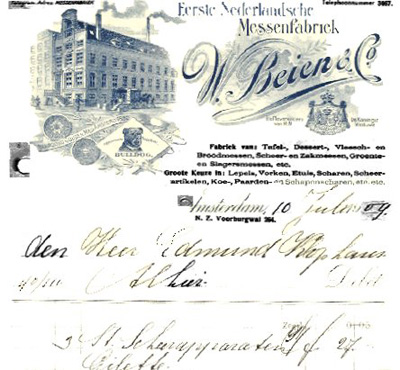 Telegram-Adres MESSENFABRIEK
Telephoonnummer 3667.
Eerste Nederlandsche
Messenfabriek
W. Beien & Co
BULLDOG.
Fabriek van: Tafel-, Dessert-, Vleesch- en
Broodmessen, Scheer- en Zakmessen, Groente-
en Slagersmessen, etc.
Groote Keuze in: Lepels, Vorken, Etuis, Scharen, Scheer-
artikelen, Koe-, Paarden- en Schapenscharen, etc. etc.
Amsterdam, 10 Juli 1909.
N. Z. Voorburgwal 264.
den Heer Edmund Klophaus
Alhier. Debet
3 St. Scheerapparaten 9/- f 27.
Gilette